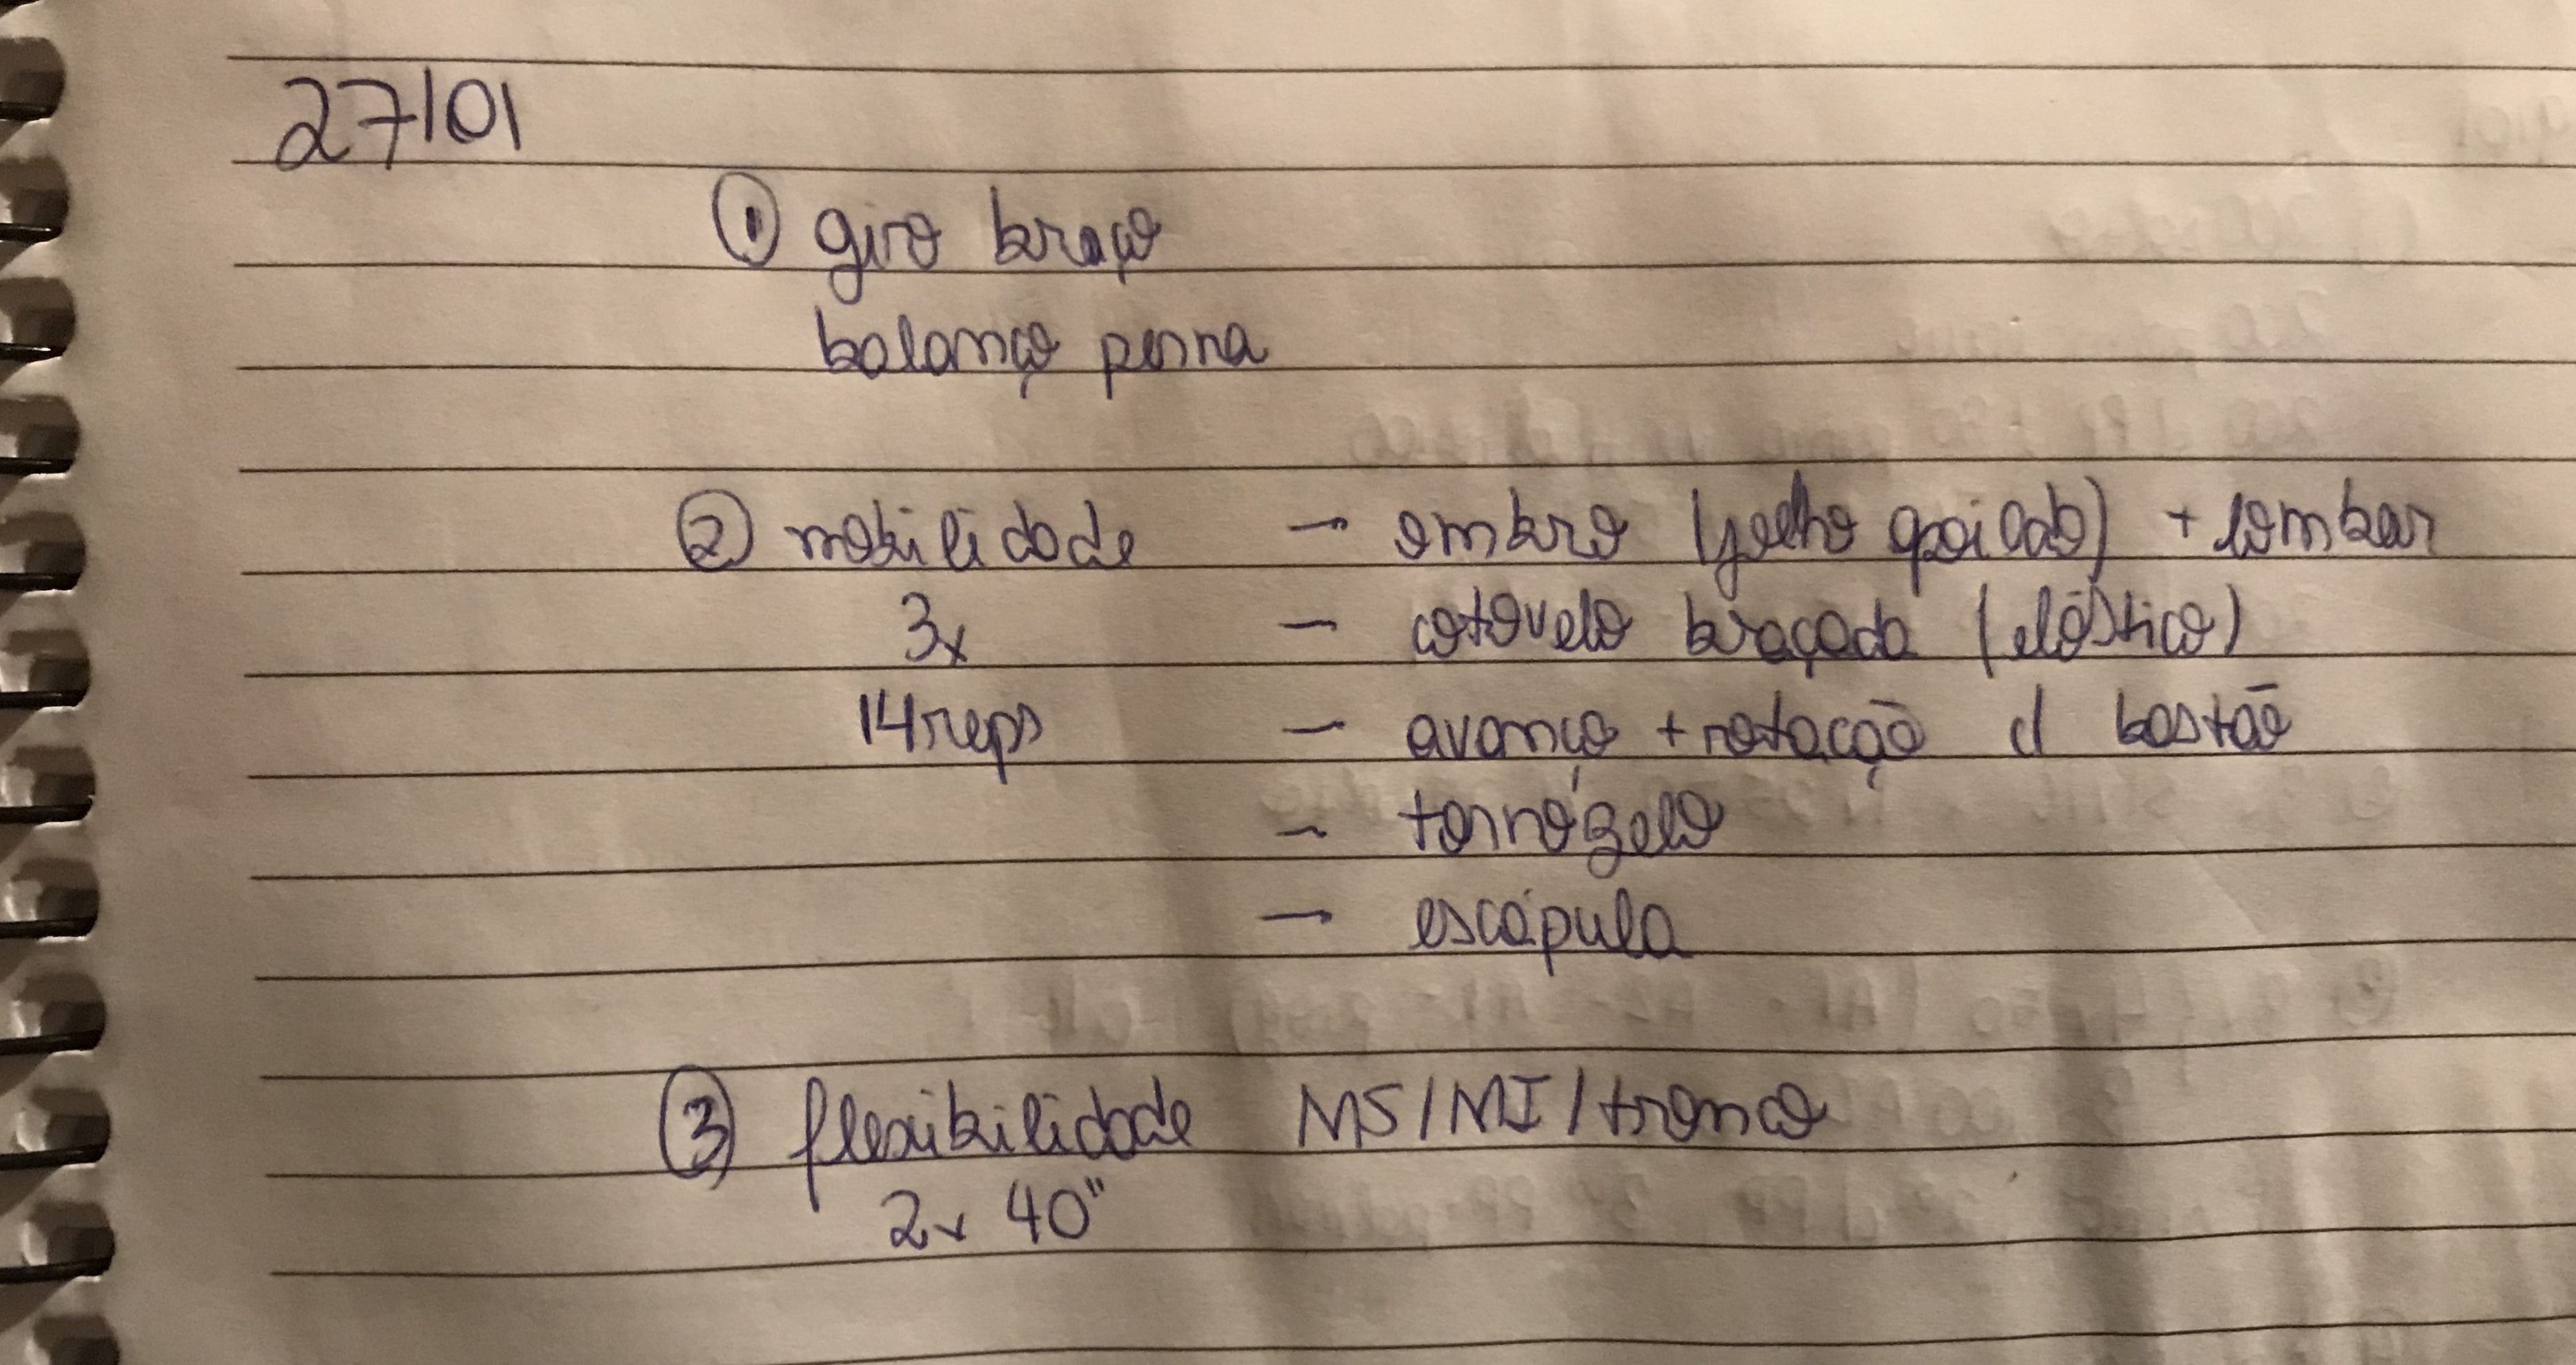 27/01
① giro braço
balanço perna
② mobilidade → ombro (joelho apoiado) + lombar
3x - cotovelo braçada (elástico)
14 reps - avanço + rotação c/ bastão
- tornozelo
- escápula
③ flexibilidade MS/MI/tronco
2x 40"